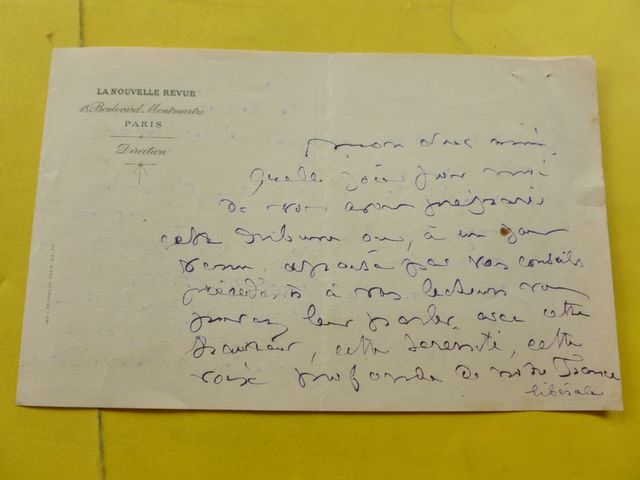 LA NOUVELLE REVUE
18, Boulevard Montmartre
PARIS
Direction
mon cher ami
Quelle joie pour moi
de vous avoir préparé
cette tribune ou, à un jour
venu, par vos conseils
précédents à vos lecteurs vous
pourrez leur parler avec cette
hauteur, cette sérénité, cette
voix profonde de notre France
libérale